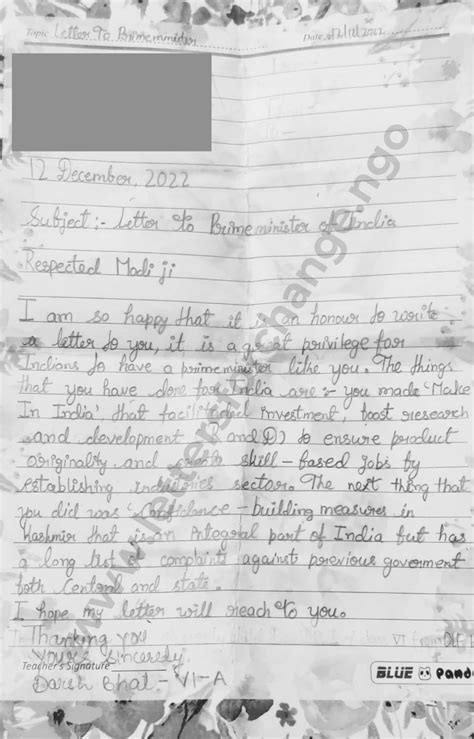 Topic Letter To Primeminister Date 12/12/2022
12 December, 2022
Subject :- Letter to Primeminister of India
Respected Modi ji
I am so happy that it is an honour to write
a letter to you, it is a great privilege for
Indians to have a primeminister like you. The things
that you have done for India are :- you made 'Make
In India' that facilitated investment, boost research
and development (R and D) to ensure product
originality and create skill-based jobs by
establishing industries sector. The next thing that
you did was confidence-building measures in
Kashmir that is an Integral part of India but has
a long list of complaint against previous goverment
both Central and state.
I hope my letter will reach to you.
Thanking you
Yours Sincerely,
Teacher's Signature
Darsh Bhat - VI-A
BLUE Panda
www.lettersforchange.ngo